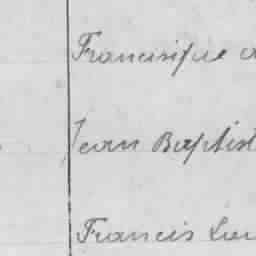 Francisque
Jean Baptist
Francis